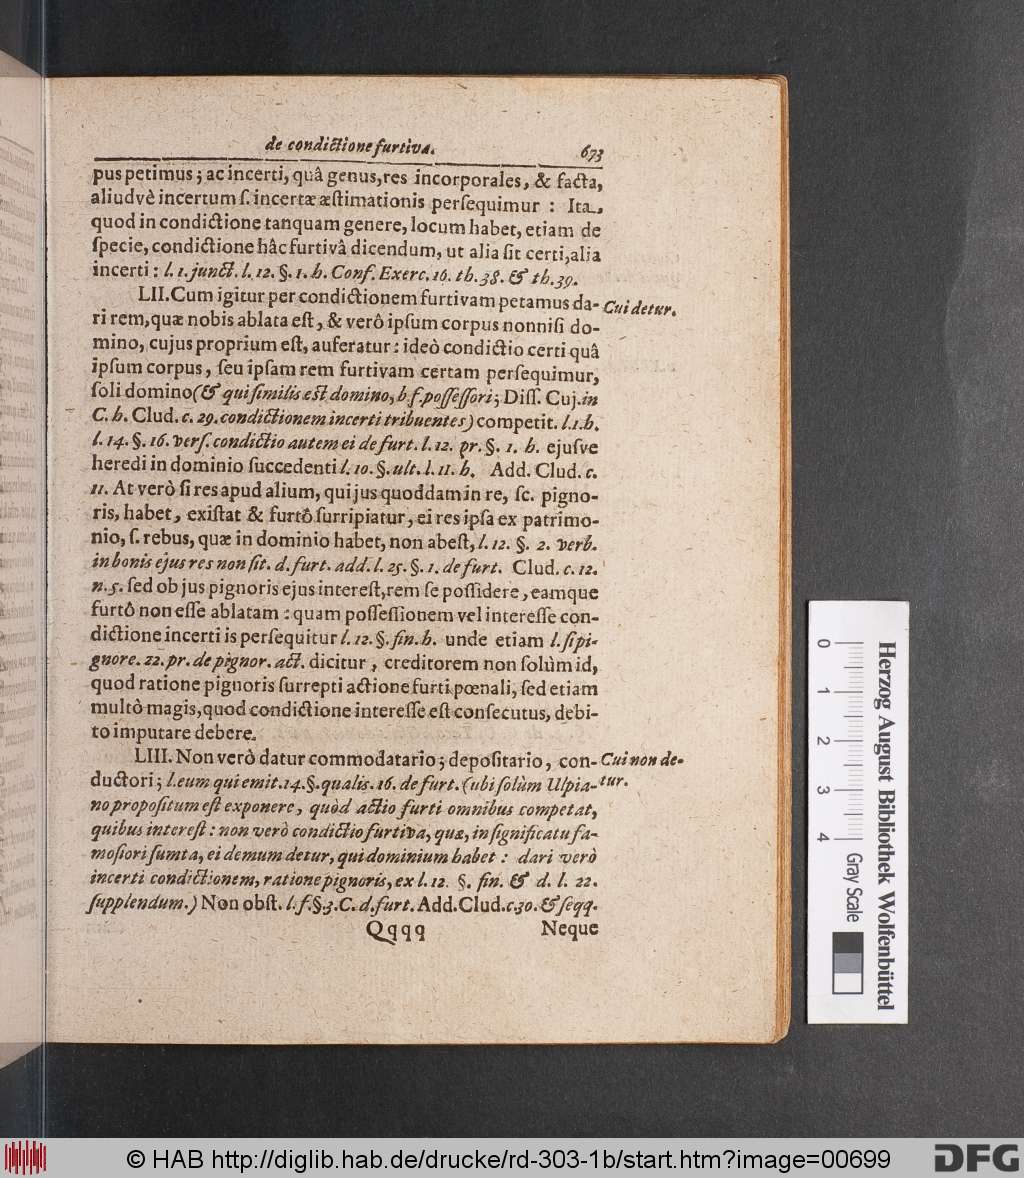 de condictione furtiva. 673
pus petimus; ac incerti, quâ genus, res incorporales, & facta,
aliudvè incertum ſ. incertæ æſtimationis perſequimur : Ita,
quod in condictione tanquam genere, locum habet, etiam de
ſpecie, condictione hâc furtivâ dicendum, ut alia ſit certi, alia
incerti : l. 1. junct. l. 12. §. 1. h. Conf. Exerc. 16. th. 38. & th. 39.
LII. Cum igitur per condictionem furtivam petamus da- Cui detur.
ri rem, quæ nobis ablata eſt, & verô ipſum corpus nonniſi do-
mino, cujus proprium eſt, auferatur : ideò condictio certi quâ
ipſum corpus, ſeu ipſam rem furtivam certam perſequimur,
ſoli domino (& qui ſimilis est domino, b. f. poſſeſſori; Diſſ. Cuj. in
C. h. Clud. c. 29. condictionem incerti tribuentes) competit. l. 1. h.
l. 14. §. 16. verſ. condictio autem ei de furt. l. 12. pr. §. 1. h. ejuſve
heredi in dominio ſuccedenti l. 10. §. ult. l. 11. h. Add. Clud. c.
11. At verò ſi res apud alium, qui jus quoddam in re, ſc. pigno-
ris, habet, exiſtat & furtô ſurripiatur, ei res ipſa ex patrimo-
nio, ſ. rebus, quæ in dominio habet, non abeſt, l. 12. §. 2. verb.
in bonis ejus res non ſit. d. furt. add. l. 25. §. 1. de furt. Clud. c. 12.
n. 5. ſed ob jus pignoris ejus intereſt, rem ſe poſſidere, eamque
furtô non eſſe ablatam : quam poſſeſſionem vel intereſſe con-
dictione incerti is perſequitur l. 12. §. fin. h. unde etiam l. ſi pi-
gnore. 22. pr. de pignor. act. dicitur, creditorem non ſolùm id,
quod ratione pignoris ſurrepti actione furti pœnali, ſed etiam
multò magis, quod condictione intereſſe eſt conſecutus, debi-
to imputare debere.
LIII. Non verò datur commodatario; depoſitario, con- Cui non de-
ductori; l. eum qui emit. 14. §. qualis. 16. de furt. (ubi ſolùm Ulpia- tur.
no propoſitum eſt exponere, quòd actio furti omnibus competat,
quibus intereſt : non verò condictio furtiva, quæ, in ſignificatu fa-
moſiori ſumta, ei demum detur, qui dominium habet : dari verò
incerti condictionem, ratione pignoris, ex l. 12. §. fin. & d. l. 22.
ſupplendum.) Non obſt. l. f. §. 3. C. d. furt. Add. Clud. c. 30. & ſeqq.
Qqqq Neque
0 1 2 3 4
Gray Scale
Herzog August Bibliothek Wolfenbüttel
© HAB http://diglib.hab.de/drucke/rd-303-1b/start.htm?image=00699
DFG